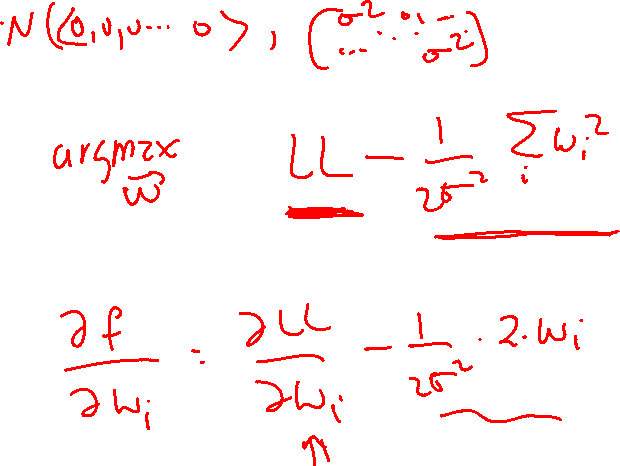 N(<0,0,0... 0>, (σ² 0, ... ... σ²))
argmax w⃗ LL - 1/2σ² Σᵢ wᵢ²
∂f/∂wᵢ = ∂LL/∂wᵢ - 1/2σ² · 2 · wᵢ